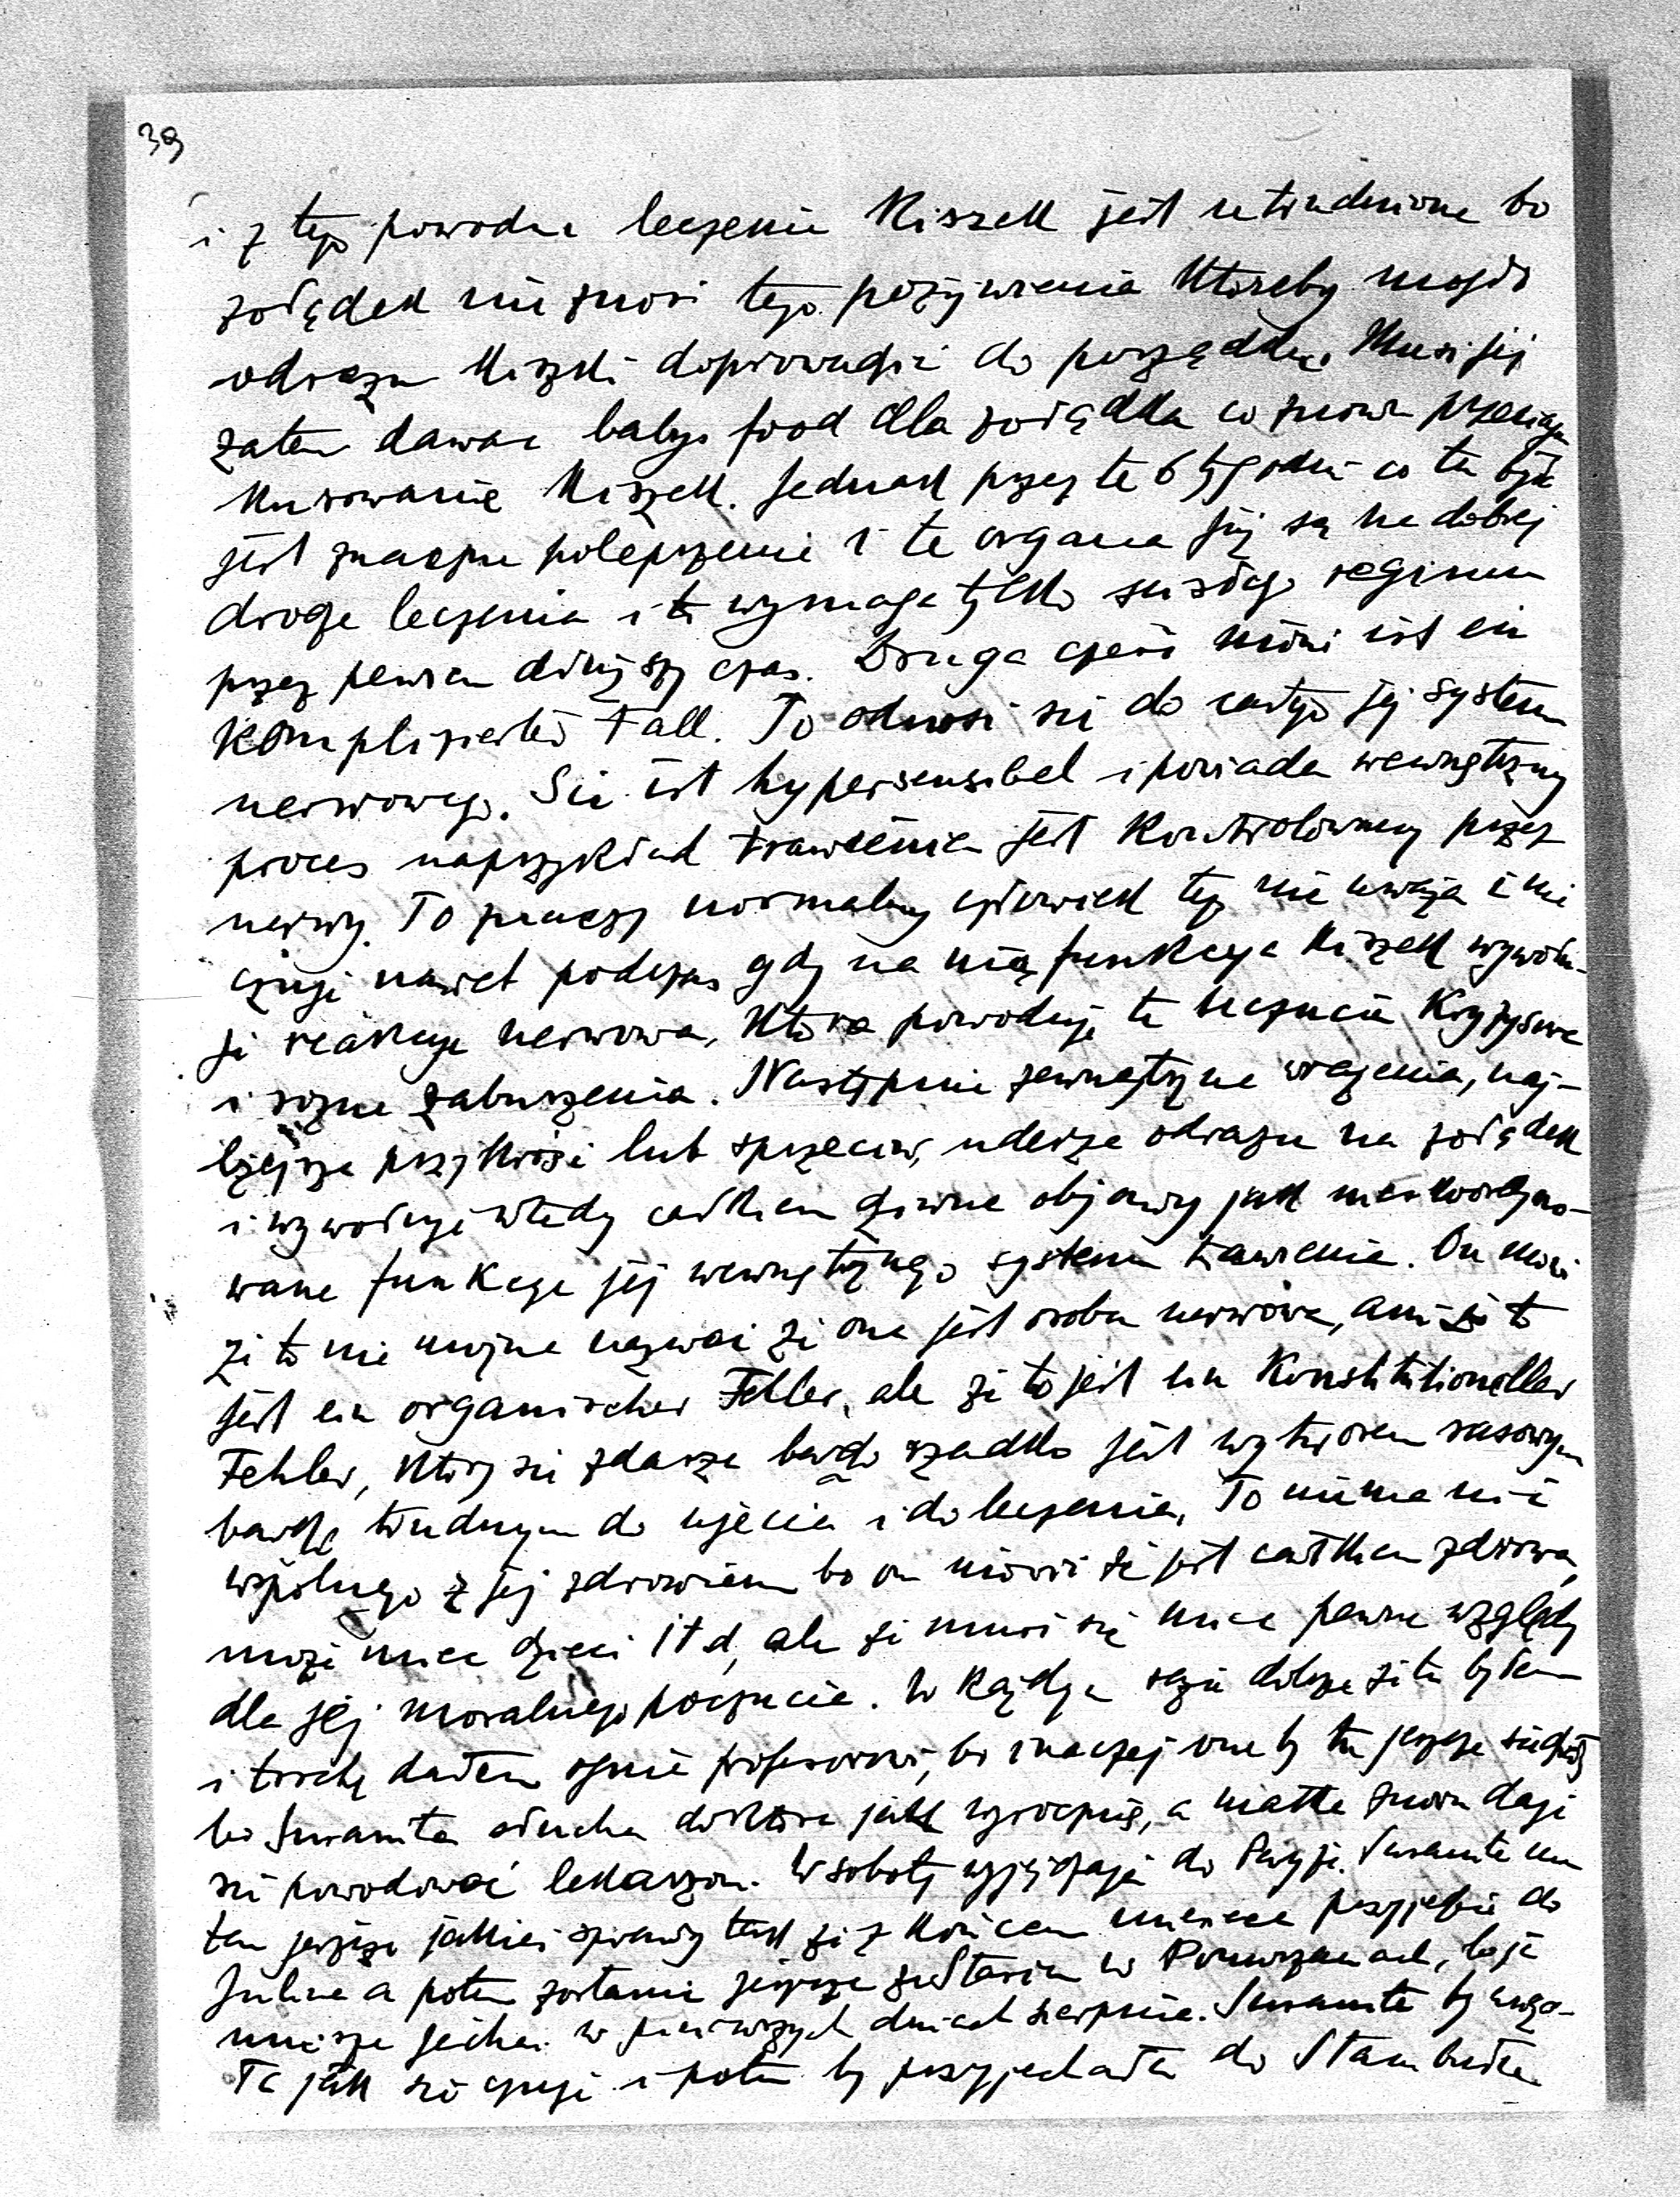 39
i z tego powodu leczenie Kiszek jest utrudnione bo
żołądek nie znosi tego pożywienia któreby mogło
odrazu kiszki doprowadzić do porządku. Musi jej
zatem dawać baby food dla żołądka co znowu przeciąga
kurowanie kiszek. Jednak przez te 6 tygodni co tu była
jest znaczne polepszenie i te organa jej są na dobrej
drodze leczenia i to wymaga tylko surowego regimu
przez pewien dłuższy czas. Druga część mówi ist ein
Komplizierter Fall. To odnosi się do całego jej systemu
nerwowego. Sie ist hypersensibel i posiada wewnętrzny
proces naprzykład trawienia jest Kontrolowany przez
nerwy. To znaczy normalny człowiek tego nie uważa i nie
czuje nawet podczas gdy na nią funkcya kiszek wywołu-
je reakcye nerwowa, która powoduje te uczucia Kryzysowe
i rożne zaburzenia. Następnie zewnętrzne wrażenia, naj-
lżejsze przykrości lub sprzeciw, uderza odrazu na żołądek
i wywołuje wtedy całkiem dziwne objawy jak nieskoordyno-
wane funkcye jej wewnętrznego systemu trawienia. On mówi
że to nie można nazwać że ona jest osoba nerwowa, ani że to
jest ein organischer Fehler, ale że to jest ein Konstitutioneller
Fehler, który się zdarza bardzo rzadko jest wytworem rasowym
bardzo trudnym do ujęcia i do leczenia. To nie ma nic
wspólnego z jej zdrowiem bo on mówi że jest całkiem zdrowa,
może mieć dzieci itd, ale że musi się mieć pewne względy
dla jej moralnego poczucia. W każdym razie dobrze że tu byłem
i trochę dałem ognia profesorowi, bo inaczej one by tu jeszcze siedziały
bo Suzanna słucha doktora jak wyrocznię, a matka znowu daje
się powodować lekarzom. W sobotę wyjeżdżają do Paryża. ma
tam jeszcze jakieś sprawy tak że z końcem miesiąca przyjedzie do
a potem zostanie jeszcze w bo ja
muszę jechać w pierwszych dniach sierpnia. by
ła jak się czuje i potem by przyjechała do Stambułu